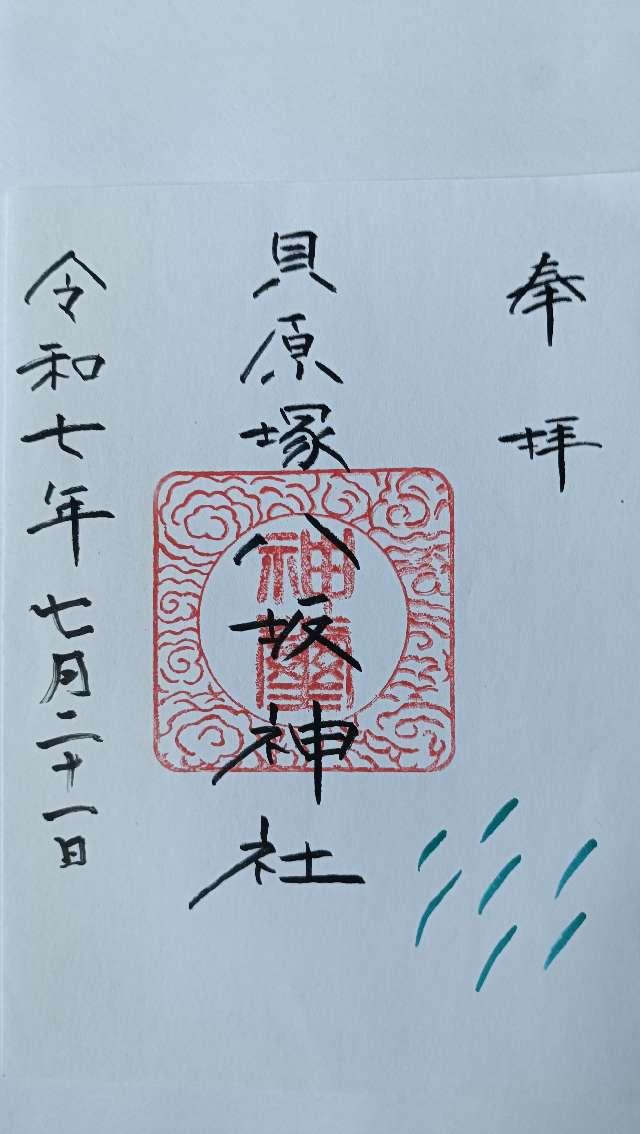 奉拝
貝原塚八坂神社
神璽
令和七年七月二十一日